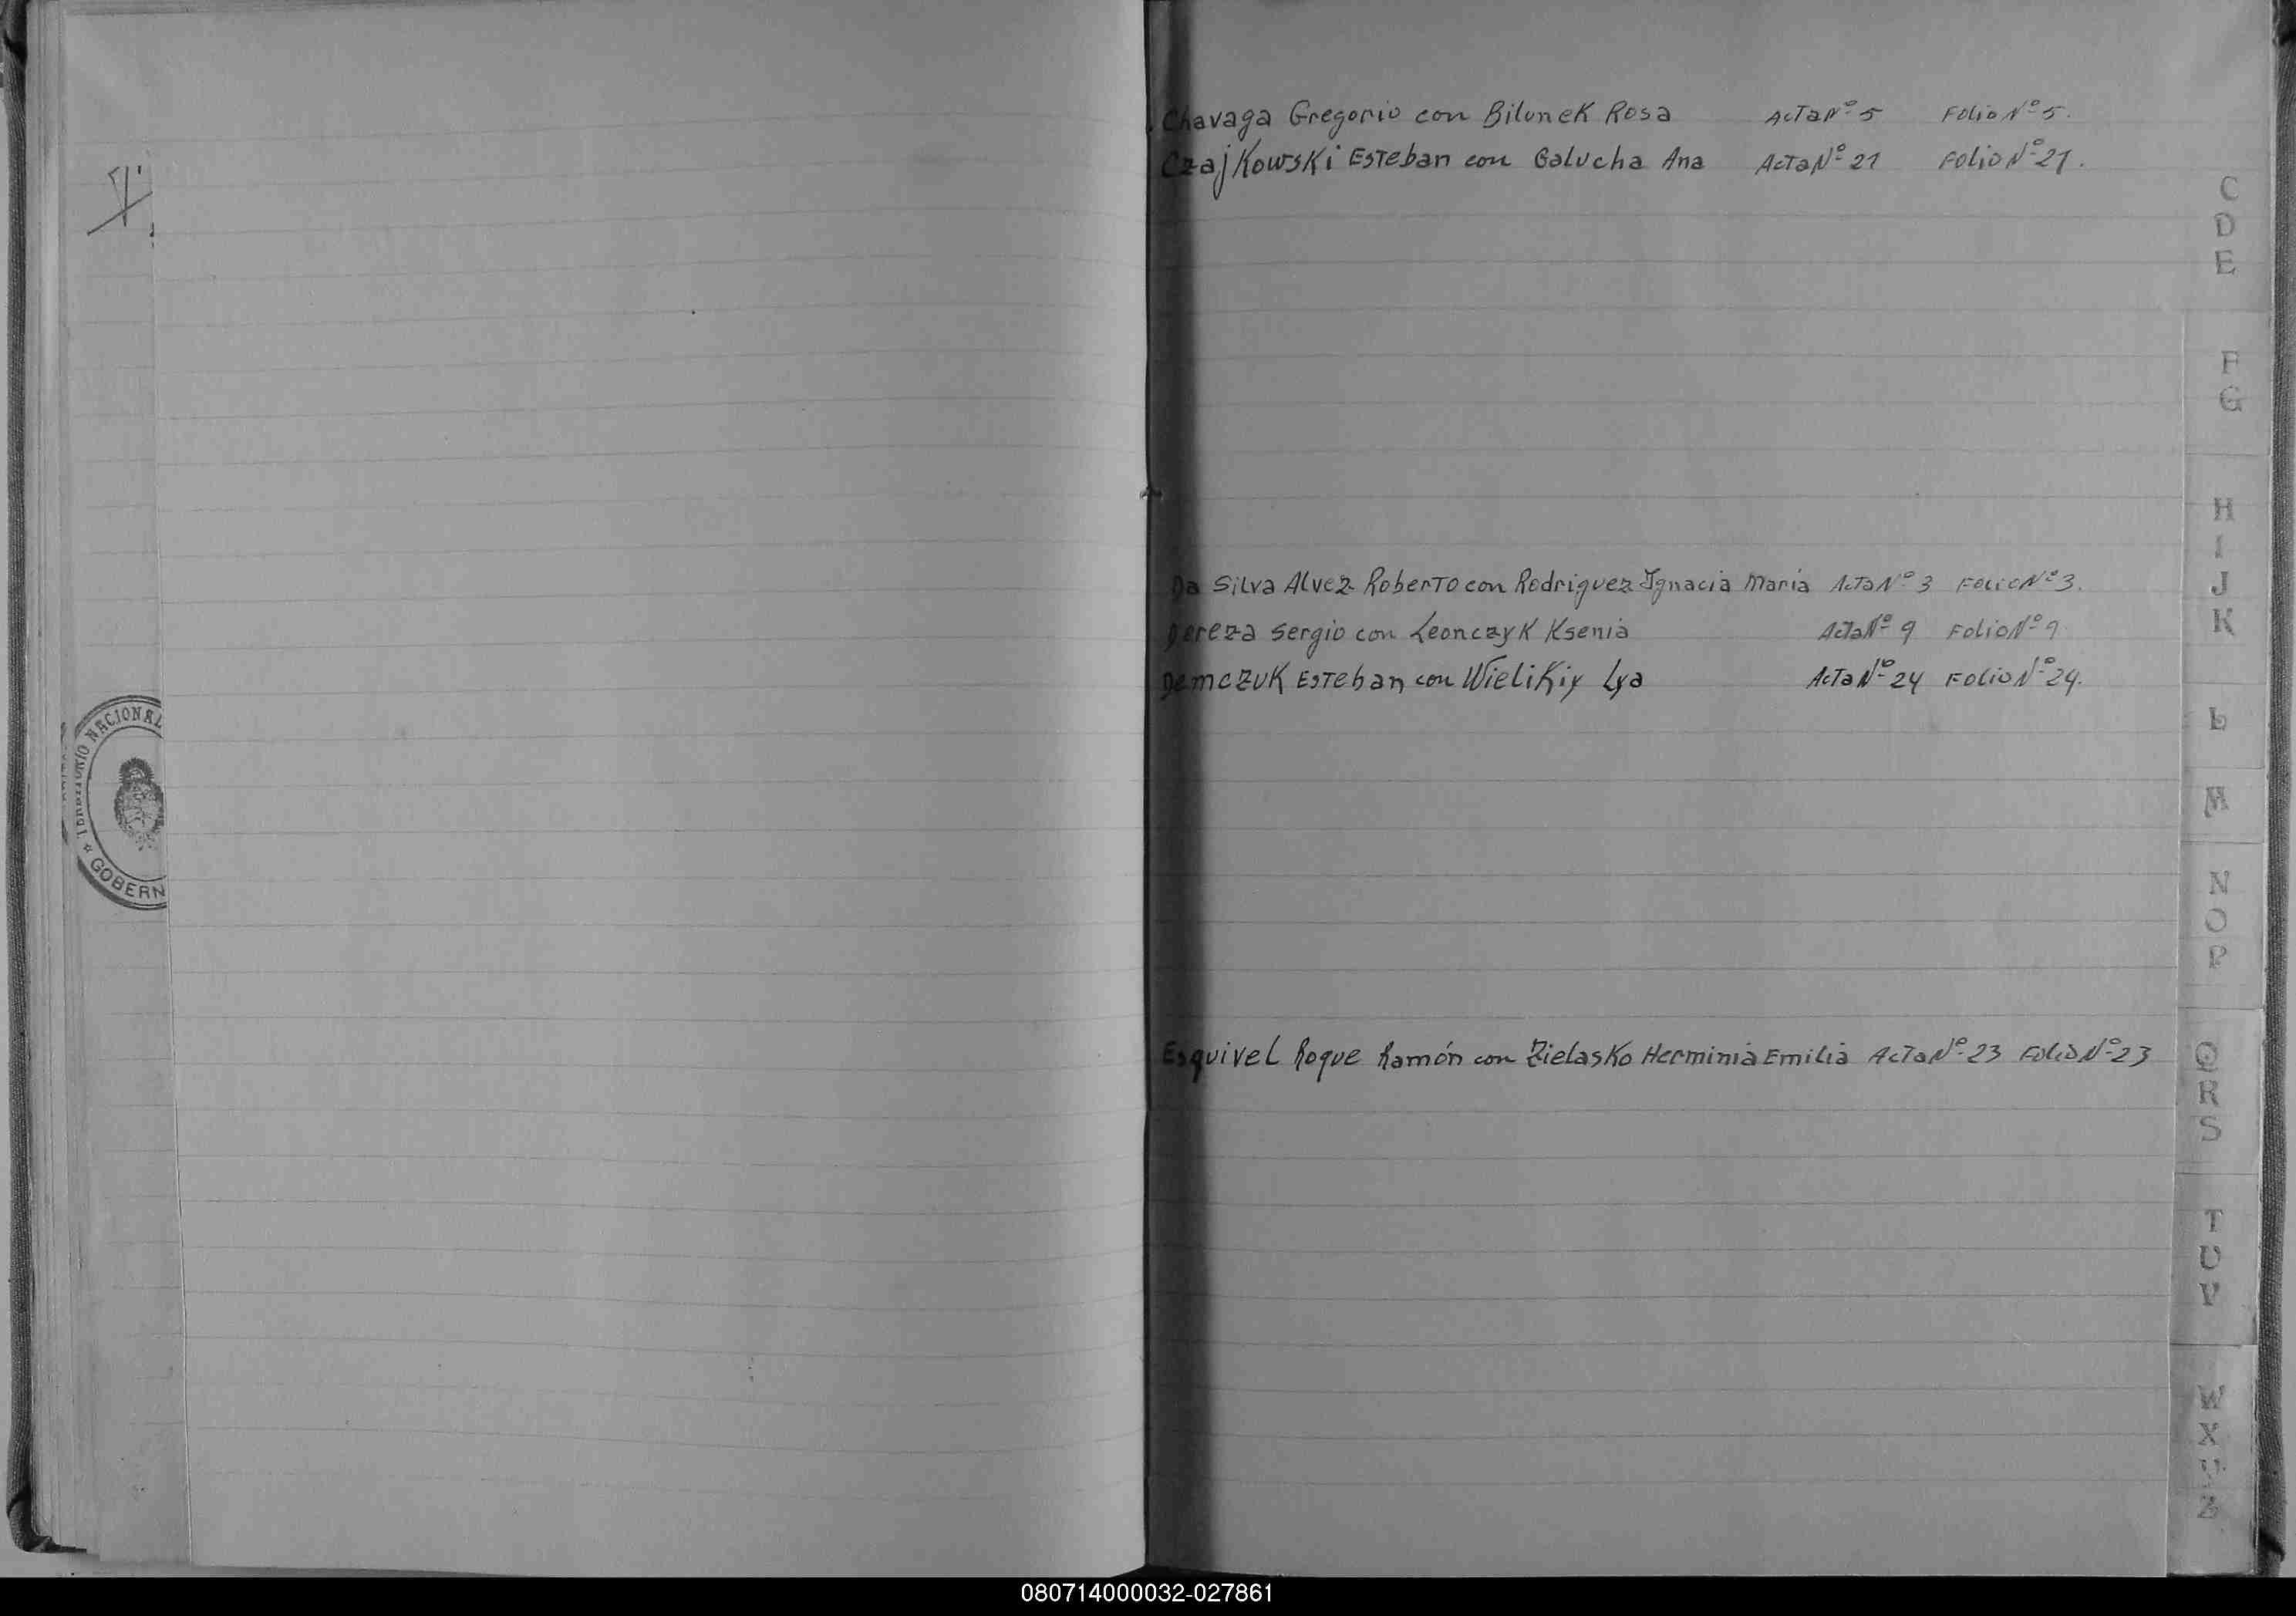 Chavaga Gregorio con Bilunek Rosa Acta Nº 5 Folio Nº 5.
Czajkowski Esteban con Galucha Ana Acta Nº 21 Folio Nº 21.
Da Silva Alvez Roberto con Rodriguez Ignacia Maria Acta Nº 3 Folio Nº 3.
Dereza Sergio con Leonczyk Ksenia Acta Nº 9 Folio Nº 9
Demczuk Esteban con Wielikiy Lya Acta Nº 24 Folio Nº 24.
Esquivel Roque Ramón con Zielasko Herminia Emilia Acta Nº 23 Folio Nº 23
TERRITORIO NACIONAL
GOBERN
C
D
E
F
G
H
I
J
K
L
M
N
O
P
Q
R
S
T
U
V
W
X
Y
Z
080714000032-027861